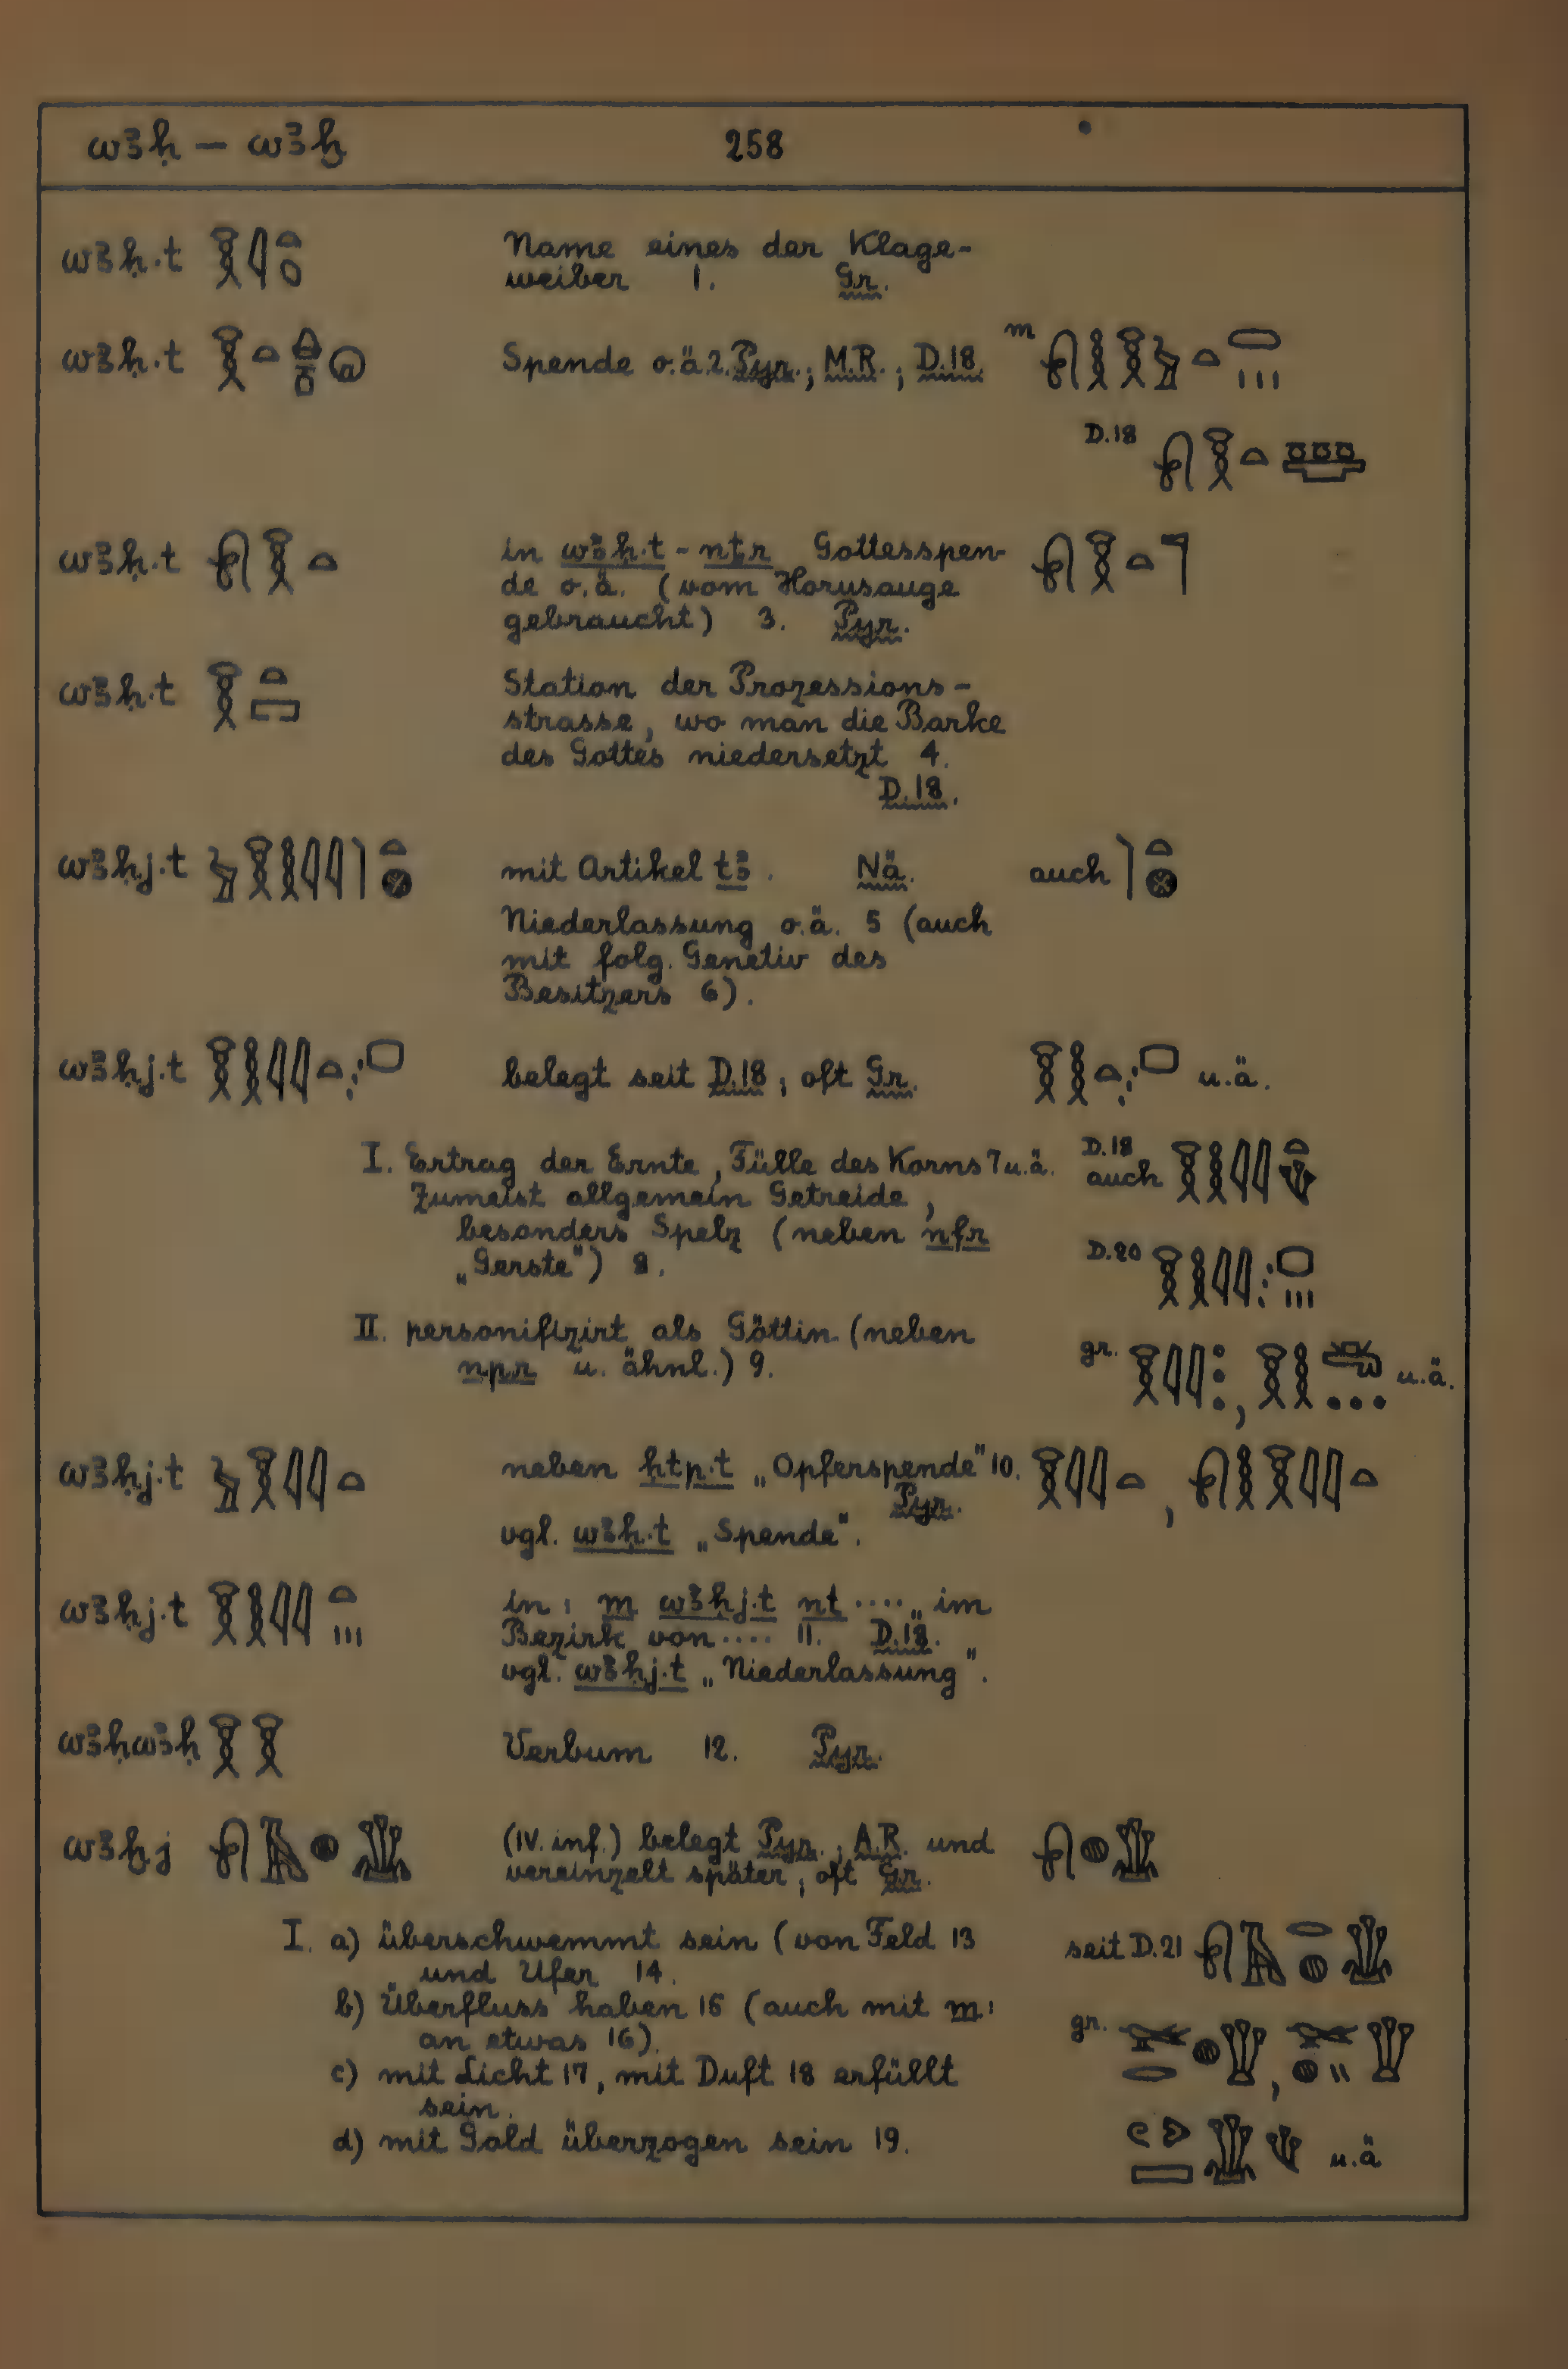 wꜣḥ – wꜣḫ 258
wꜣḥ.t Name eines der Klage-
weiber 1. Gr.
wꜣḥ.t Spende o.ä. 2. Pyr.; M.R.; D.18. m
D.18
wꜣḥ.t in wꜣḥ.t - nṯr Gottesspen-
de o.ä. (vom Horusauge
gebraucht) 3. Pyr.
wꜣḥ.t Station der Prozessions-
strasse, wo man die Barke
des Gottes niedersetzt 4.
D.18.
wꜣḥj.t mit Artikel tꜣ. Nä. auch
Niederlassung o.ä. 5 (auch
mit folg. Genetiv des
Besitzers 6).
wꜣḥj.t belegt seit D.18; oft Gr. u.ä.
I. Ertrag der Ernte, Fülle des Korns 7 u.ä. D.18 auch
Zumeist allgemein Getreide,
besonders Spelz (neben nfr
„Gerste") 8. D.20
II. personifizirt als Göttin (neben
npr u. ähnl.) 9. gr. , u.ä.
wꜣḥj.t neben ḥtp.t „Opferspende" 10. ,
Pyr.
vgl. wꜣḥ.t „Spende".
wꜣḥj.t in: m wꜣḥj.t nt .... „im
Bezirk von .... 11. D.18.
vgl. wꜣḥj.t „Niederlassung".
wꜣḥwꜣḥ Verbum 12. Pyr.
wꜣḫj (IV. inf.) belegt Pyr.; A.R. und
vereinzelt später; oft Gr.
I. a) überschwemmt sein (von Feld 13 seit D.21
und Ufer 14.
b) Überfluss haben 15 (auch mit m:
an etwas 16). gr. ,
c) mit Licht 17, mit Duft 18 erfüllt
sein.
d) mit Gold überzogen sein 19. u.ä